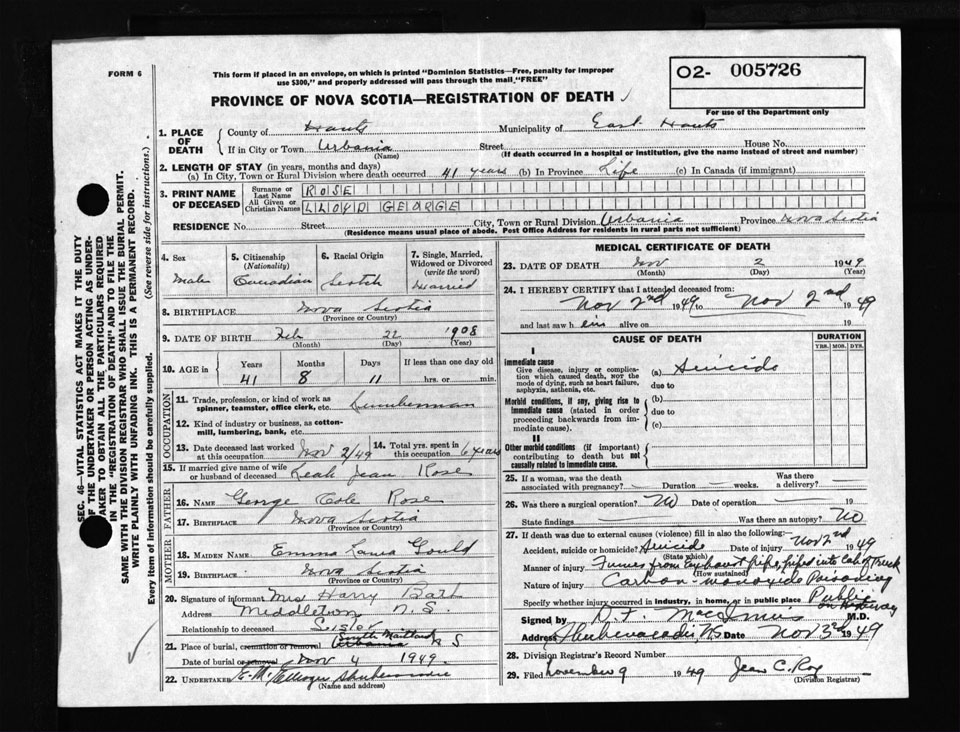 FORM 6
This form if placed in an envelope, on which is printed "Dominion Statistics—Free, penalty for improper
use $300," and properly addressed will pass through the mail "FREE"
O2- 005726
For use of the Department only
PROVINCE OF NOVA SCOTIA—REGISTRATION OF DEATH
SEC. 46—VITAL STATISTICS ACT MAKES IT THE DUTY
OF THE UNDERTAKER OR PERSON ACTING AS UNDER-
TAKER TO OBTAIN ALL THE PARTICULARS REQUIRED
IN THE "REGISTRATION OF DEATH" AND TO FILE THE
SAME WITH THE DIVISION REGISTRAR WHO SHALL ISSUE THE BURIAL PERMIT.
WRITE PLAINLY WITH UNFADING INK. THIS IS A PERMANENT RECORD.
Every item of information should be carefully supplied. (See reverse side for instructions.)
1. PLACE OF DEATH
County of Hants Municipality of East Hants
If in City or Town Urbania Street House No.
(Name) (If death occurred in a hospital or institution, give the name instead of street and number)
2. LENGTH OF STAY (in years, months and days)
(a) In City, Town or Rural Division where death occurred 41 years (b) In Province Life (c) In Canada (if immigrant)
3. PRINT NAME OF DECEASED
Surname or Last Name ROSE
All Given or Christian Names LLOYD GEORGE
RESIDENCE No. Street City, Town or Rural Division Urbania Province Nova Scotia
(Residence means usual place of abode. Post Office Address for residents in rural parts not sufficient)
4. Sex 5. Citizenship (Nationality) 6. Racial Origin 7. Single, Married, Widowed or Divorced (write the word)
Male Canadian Scotch Married
8. BIRTHPLACE Nova Scotia
(Province or Country)
9. DATE OF BIRTH Feb 22 1908
(Month) (Day) (Year)
10. AGE in Years Months Days If less than one day old
41 8 11 hrs. or min.
OCCUPATION
11. Trade, profession, or kind of work as
spinner, teamster, office clerk, etc. Lumberman
12. Kind of industry or business, as cotton-
mill, lumbering, bank, etc.
13. Date deceased last worked at this occupation Nov 2/49 14. Total yrs. spent in this occupation 6 years
15. If married give name of wife
or husband of deceased Leah Jean Rose
FATHER
16. NAME George Cole Rose
17. BIRTHPLACE Nova Scotia
(Province or Country)
MOTHER
18. MAIDEN NAME Emma Laura Gould
19. BIRTHPLACE Nova Scotia
(Province or Country)
20. Signature of informant Mrs Harry
Address Middleton N.S.
Relationship to deceased Sister
21. Place of burial, cremation or removal Urbania South Maitland N S
Date of burial or removal Nov 4 1949
22. UNDERTAKER Shubenacadie
(Name and address)
MEDICAL CERTIFICATE OF DEATH
23. DATE OF DEATH Nov 2 1949
(Month) (Day) (Year)
24. I HEREBY CERTIFY that I attended deceased from:
Nov 2nd 1949 to Nov 2nd 1949
and last saw him alive on 19
CAUSE OF DEATH DURATION
YRS. MOS. DYS.
I
Immediate cause
Give disease, injury or complica-
tion which caused death, NOT the
mode of dying, such as heart failure,
asphyxia, asthenia, etc.
(a) Suicide
due to
Morbid conditions, if any, giving rise to
immediate cause (stated in order
proceeding backwards from im-
mediate cause).
(b)
due to
(c)
II
Other morbid conditions (if important)
contributing to death but not
causally related to immediate cause.
25. If a woman, was the death Was there
associated with pregnancy? Duration weeks. a delivery?
26. Was there a surgical operation? No Date of operation 19
State findings Was there an autopsy? No
27. If death was due to external causes (violence) fill in also the following:
Accident, suicide or homicide? Suicide Date of injury Nov 2nd 1949
(State which)
Manner of injury Fumes from exhaust pipe, piped into cab of Truck
(How sustained)
Nature of injury Carbon monoxide Poisoning
Specify whether injury occurred in industry, in home, or in public place Public on Highway
Signed by D.F. MacInnis M.D.
Address Shubenacadie, N.S. Date Nov 3rd 1949
28. Division Registrar's Record Number
29. Filed November 9 1949 Jean C. Roy
(Division Registrar)